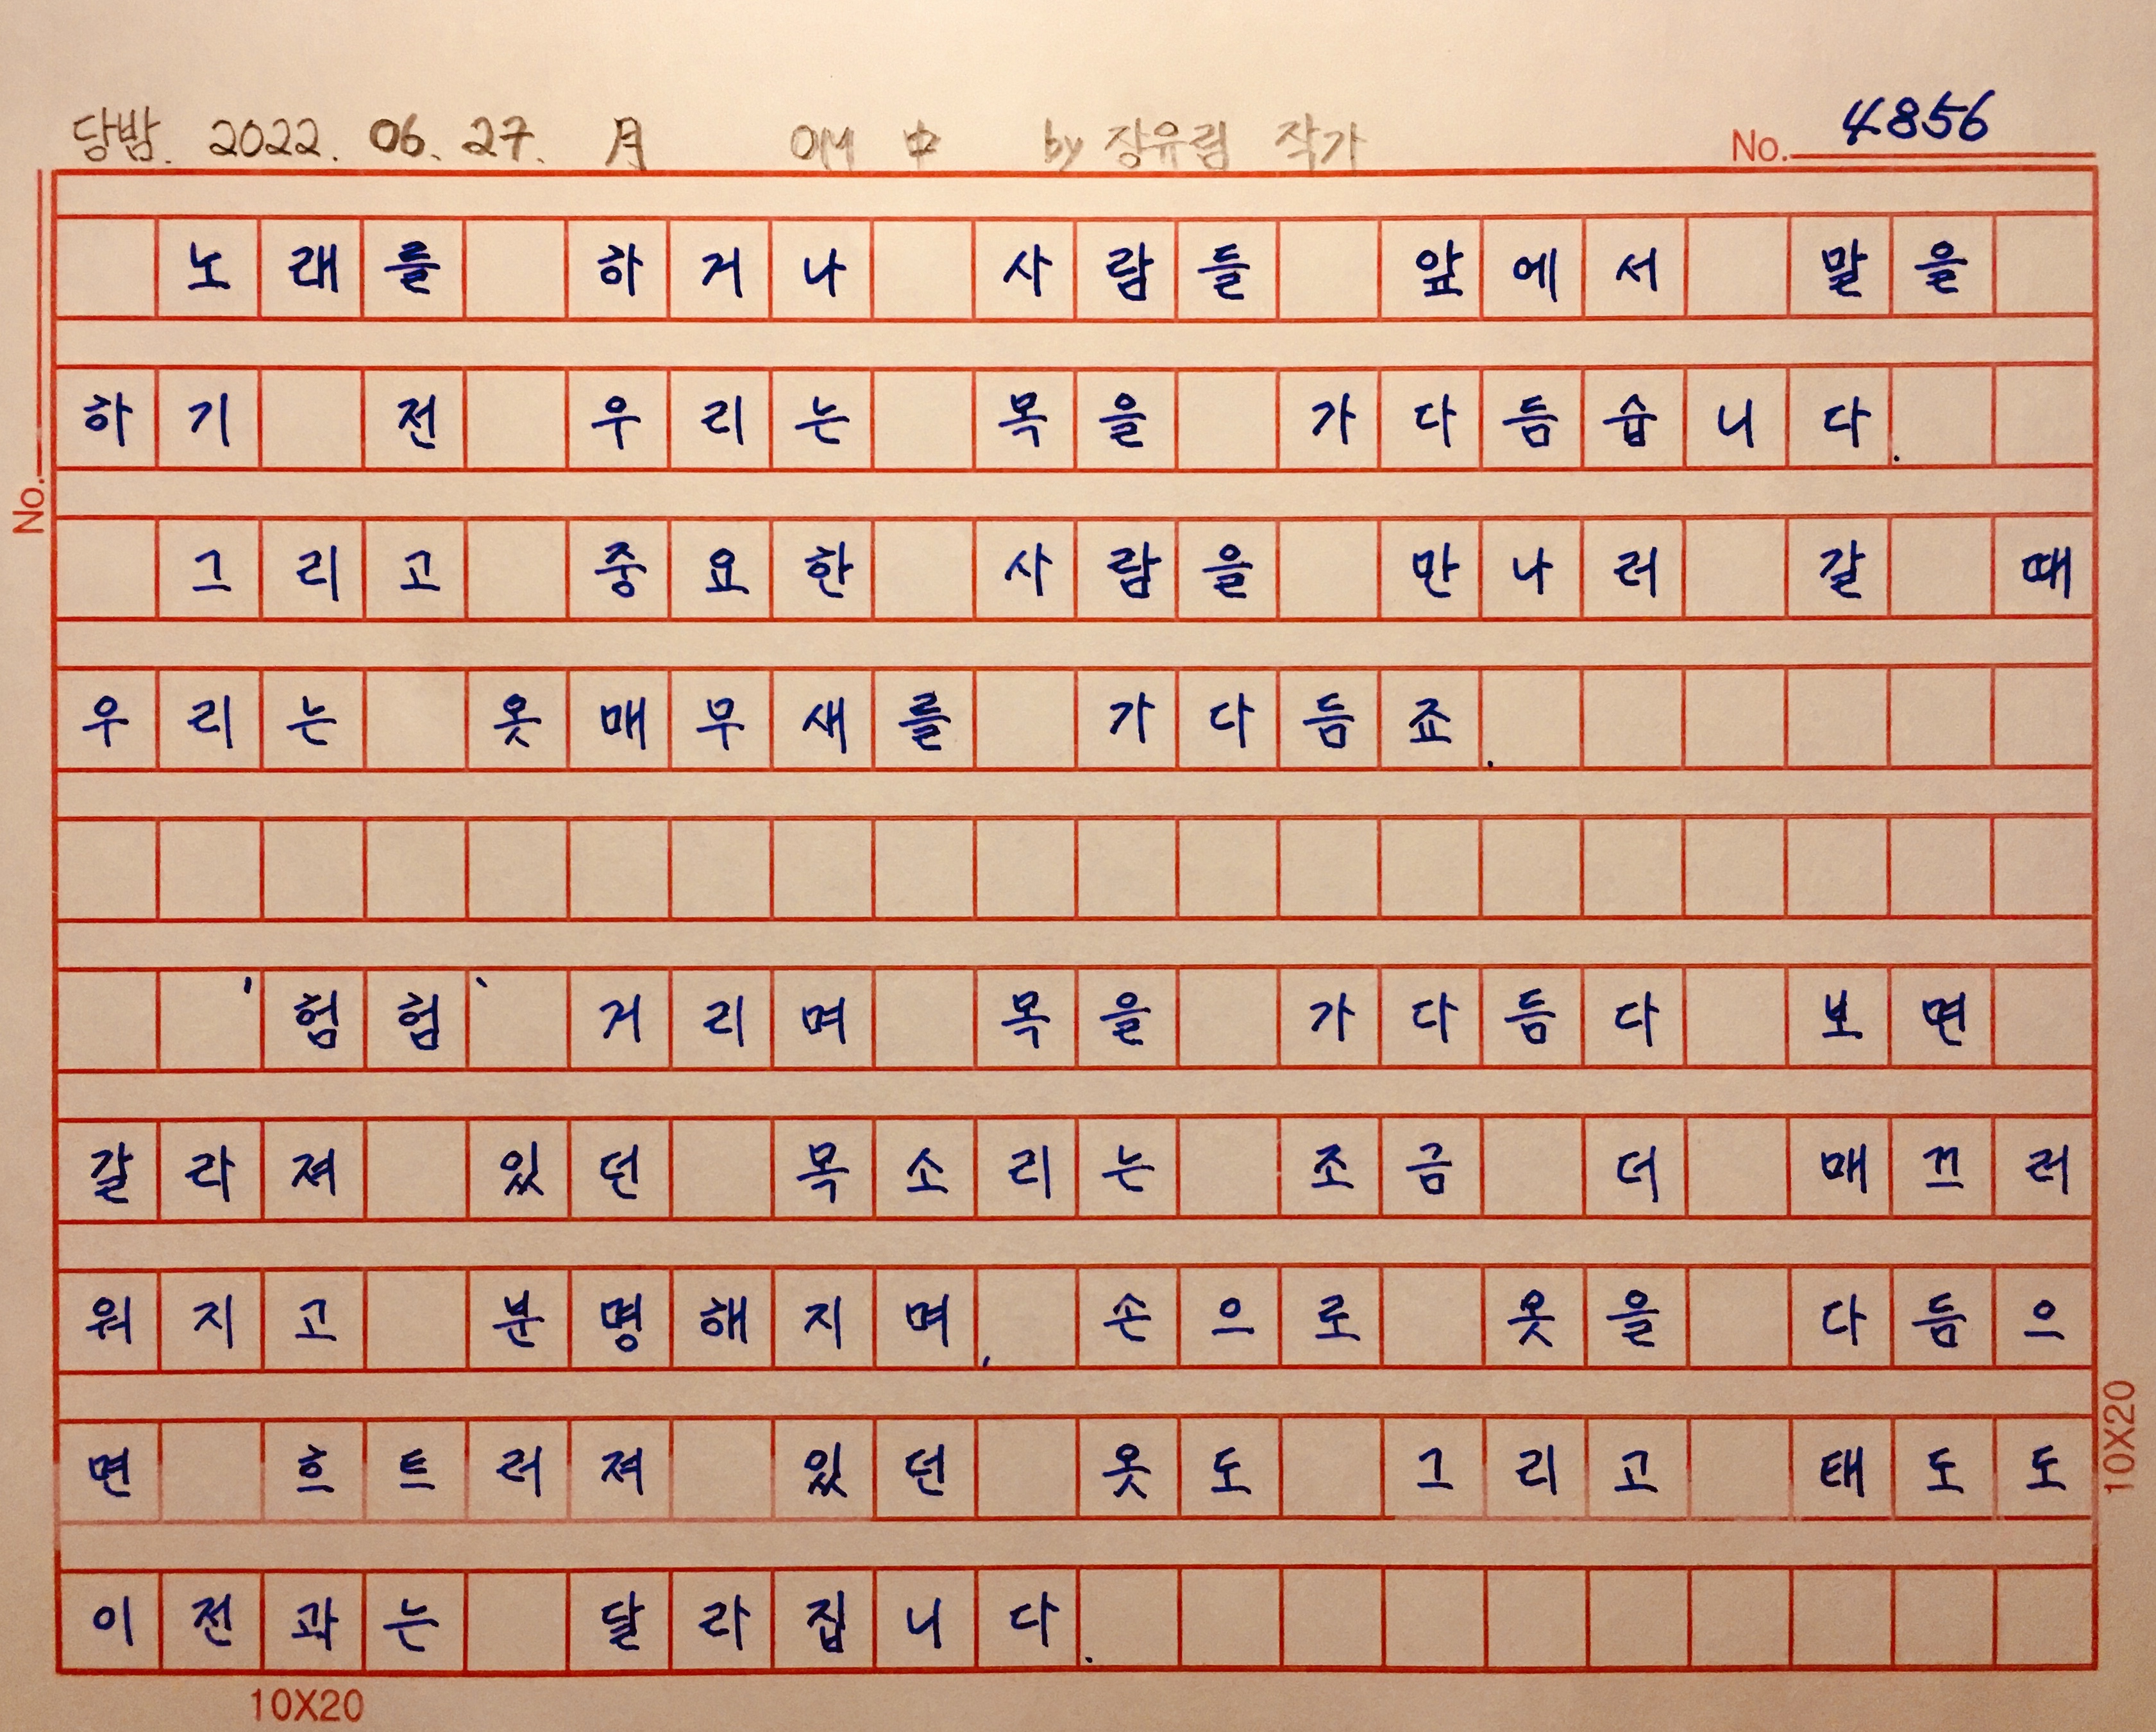 당밤. 2022. 06. 27. 月 OM 中 by 장유림 작가 No. 4856
노래를 하거나 사람들 앞에서 말을
하기 전 우리는 목을 가다듬습니다.
No.
그리고 중요한 사람을 만나러 갈 때
우리는 옷매무새를 가다듬죠.
'험험' 거리며 목을 가다듬다 보면
갈라져 있던 목소리는 조금 더 매끄러
워지고 분명해지며, 손으로 옷을 다듬으
면 흐트러져 있던 옷도 그리고 태도도
10X20
이전과는 달라집니다.
10X20